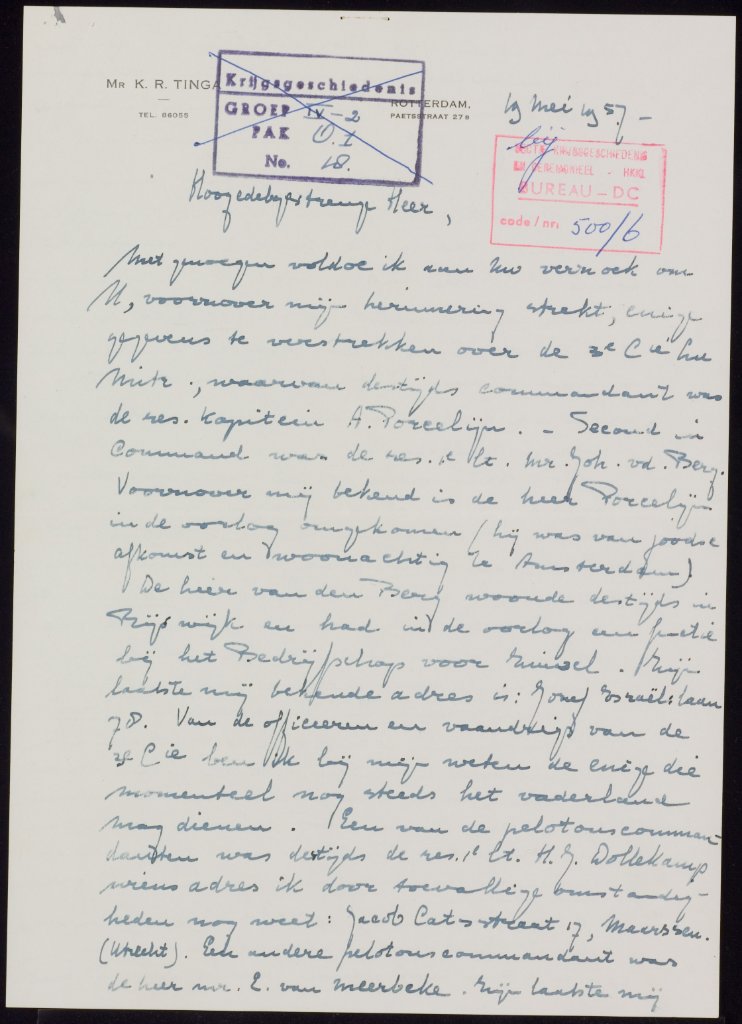 Mr K. R. TINGA
TEL. 86055
ROTTERDAM,
PAETSSTRAAT 27B
Krijgsgeschiedenis
GROEP IV-2
PAK O.I
No. 18.
19 Mei 1957.-
bij
SECTIE KRIJGSGESCHIEDENIS
EN CEREMONIEEL - HKKL
BUREAU - DC
code/nr: 500/6
Hoogedelgestrenge Heer,
Met genoegen voldoe ik aan Uw verzoek om
U, voorzover mijn herinnering strekt, enige
gegevens te verstrekken over de 3e Cie
Mitr., waarvan destijds commandant was
de res. kapitein A. Porcelijn. - Second in
Command was de res. 1e lt. mr. Joh. vd. Berg.
Voorzover mij bekend is de heer Porcelijn
in de oorlog omgekomen (hij was van joodse
afkomst en woonachtig te Amsterdam)
De heer van den Berg woonde destijds in
Rijswijk en had in de oorlog een functie
bij het Bedrijfschap voor Zuivel. Zijn
laatste mij bekende adres is: Jozef Israëlslaan
78. Van de officieren en vaandrigs van de
3e Cie ben ik bij mijn weten de enige die
momenteel nog steeds het vaderland
mag dienen. Een van de pelotonscomman-
danten was destijds de res. 1e lt. H.J. Dollekamp
wiens adres ik door toevallige omstandig-
heden nog weet: Jacob Catsstraat 17, Maarssen.
(Utrecht). Een andere pelotonscommandant was
de heer mr. E. van Meerbeke. Zijn laatste mij